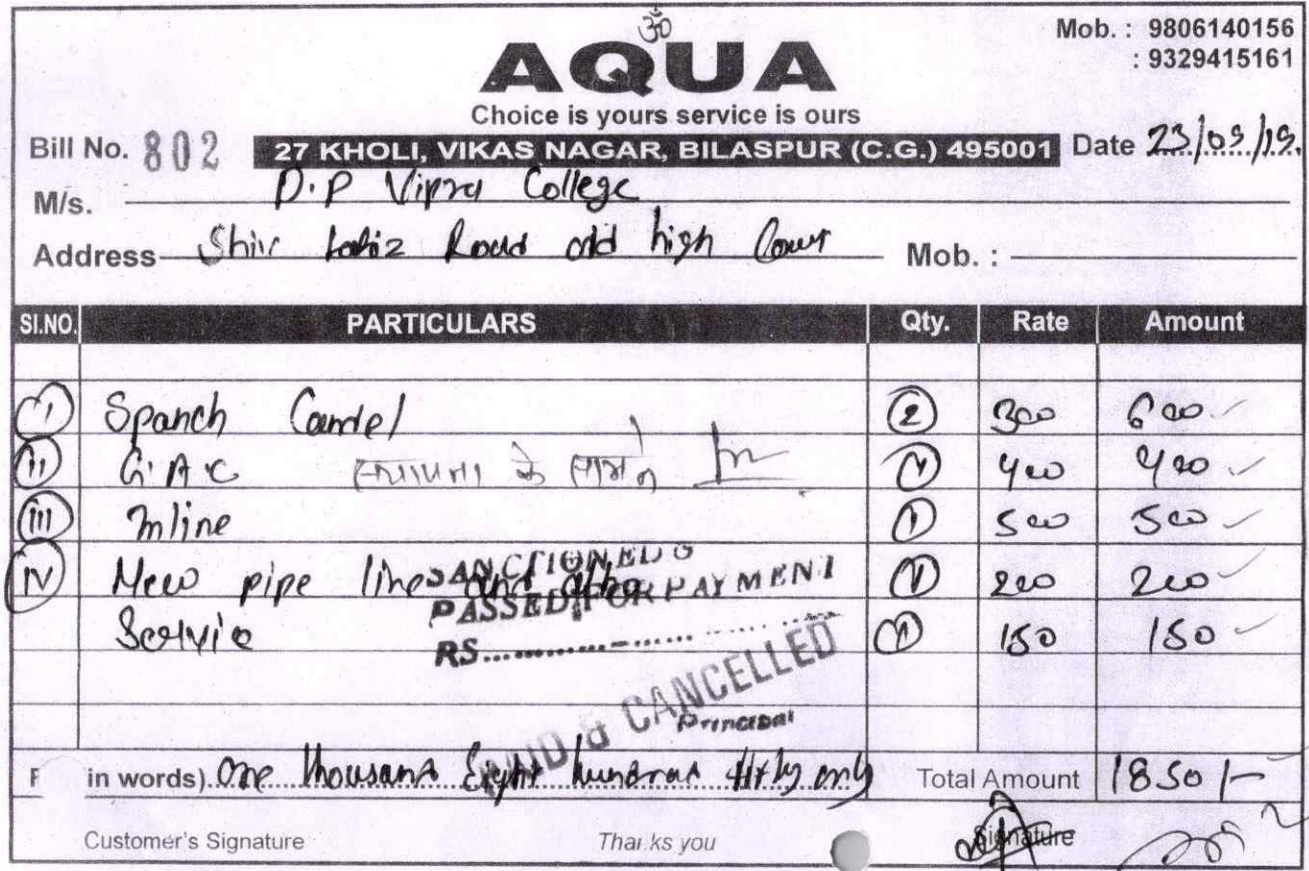 ॐ
AQUA
Mob. : 9806140156
: 9329415161
Choice is yours service is ours
Bill No. 802
27 KHOLI, VIKAS NAGAR, BILASPUR (C.G.) 495001
Date 23/09/19.
M/s. D.P Vipra College
Address Road old high Court Mob. :
SI.NO. PARTICULARS Qty. Rate Amount
(i) Spanch Candel 2 300 600
(ii) G.A.C 1 400 400
के सामने
(iii) Inline 1 500 500
(iv) New pipe line and other 1 200 200
Service 1 150 150
SANCTIONED &
PASSED FOR PAYMENT
RS
PAID & CANCELLED
Principal
in words) One thousand Eight hundred fifty only Total Amount 1850/-
Customer's Signature Thanks you Signature